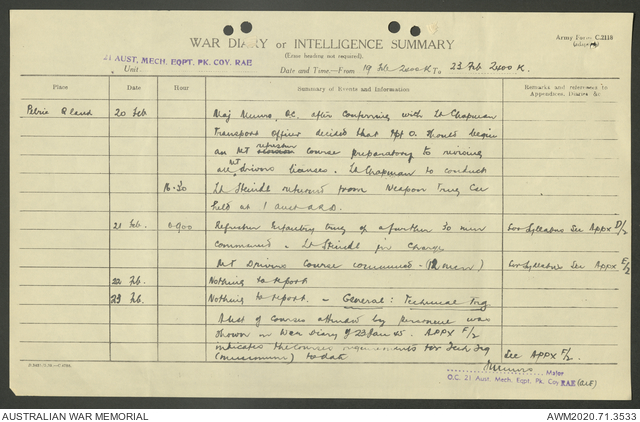 WAR DIARY or INTELLIGENCE SUMMARY
Army Form C.2118
(Erase heading not required).
21 AUST. MECH. EQPT. PK. COY. RAE
Unit
Date and Time—From 19 Feb 2400K To 23 Feb 2400K.
Place Date Hour Summary of Events and Information Remarks and references to Appendices, Diaries &c
Petrie Qland 20 Feb Maj Munro, OC. after conferring with Lt Chapman
Transport Officer decided that should begin
refresher
an MT course preparatory to reviewing
all MT drivers licences. Lt Chapman to conduct
16.30 Lt returned from Weapon Trng
held at 1 Aust
21 Feb. 0900 Refresher Infantry trng of a further 30 men For Syllabus See Appx D/2
commenced - Lt in Charge
MT Drivers Course commenced - (12 men) For Syllabus See Appx E/2
22 Feb. Nothing to report
23 Feb. Nothing to report. - General: Technical Trg
A list of courses attended by personnel was
shown in War Diary of 23 Jan 45. APPX F/2
indicates the course requirements for Tech Trg
(minimum) to date See APPX F/2.
Munro Major
O.C. 21 Aust. Mech. Eqpt. Pk. Coy RAE (AIF)
AUSTRALIAN WAR MEMORIAL AWM2020.71.3533